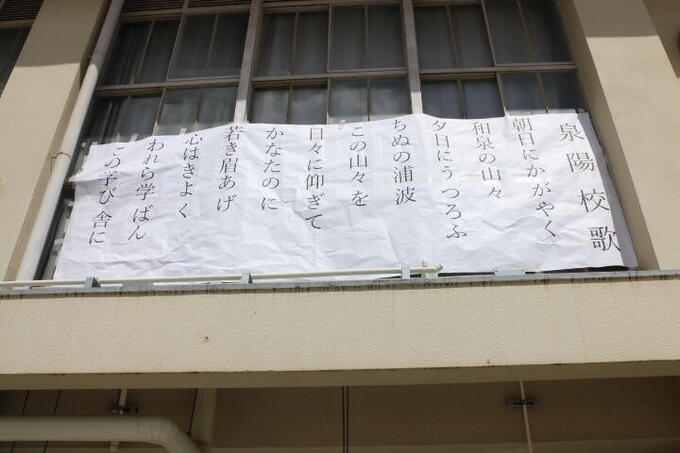 泉陽校歌
朝日にかがやく
和泉の山々
夕日にうつろふ
ちぬの浦波
この山々を
日々に仰ぎて
かなたのに
若き眉あげ
心はきよく
われら学ばん
この学び舎に